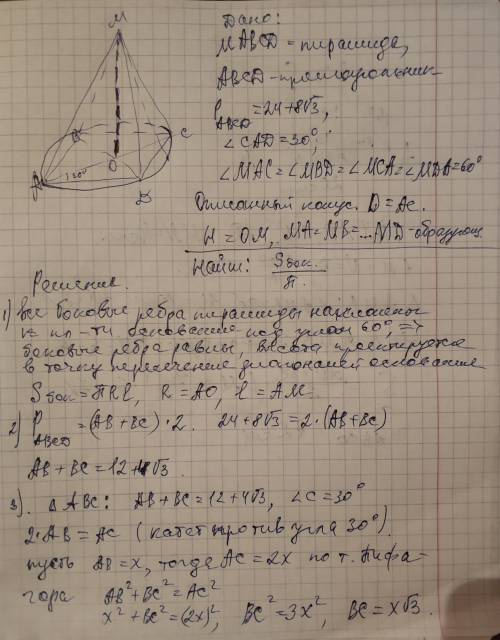 M
B
C
A
30°
O
D
Дано:
MABCD – пирамида,
ABCD – прямоугольник
P = 24+8√3,
ABCD
∠CAD = 30°,
∠MAC = ∠MBD = ∠MCA = ∠MDB = 60°
Описанный конус. D = AC.
H = OM, MA = MB = ... MD – образующ
Найти: Sбок.
П.
Решение.
1) Все боковые ребра пирамиды наклонены
к пл-ти основания под углом 60°, =>
боковые ребра равны, высота проектируется
в точку пересечение диагоналей основания
Sбок = ПRL, R = AO, L = AM.
2) P = (AB + BC) · 2. 24+8√3 = 2·(AB+BC)
ABCD
AB + BC = 12 + 4√3.
3). △ABC: AB+BC = 12+4√3, ∠C = 30°
2·AB = AC (катет против угла 30°).
пусть AB = x, тогда AC = 2x по т. Пифа-
гора AB² + BC² = AC²
x² + BC² = (2x)², BC² = 3x², BC = x√3.